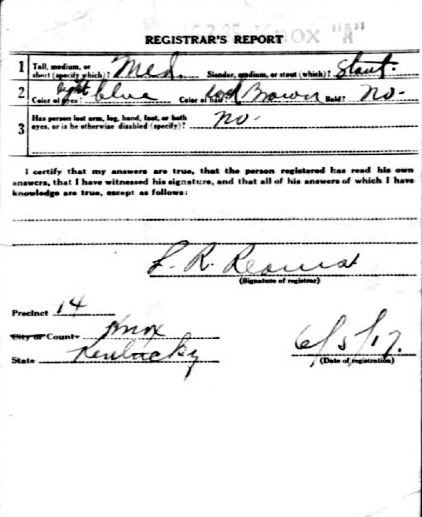 REGISTRAR'S REPORT
1 Tall, medium, or short (specify which)? Med. Slender, medium, or stout (which)? Stout.
2 Color of eyes? light blue Color of hair? Brown Bald? No-
3 Has person lost arm, leg, hand, foot, or both eyes, or is he otherwise disabled (specify)? No-
I certify that my answers are true, that the person registered has read his own
answers, that I have witnessed his signature, and that all of his answers of which I have
knowledge are true, except as follows:
F. R.
(Signature of registrar)
Precinct 14
City or County Knox
State Kentucky
6/5/17.
(Date of registration)